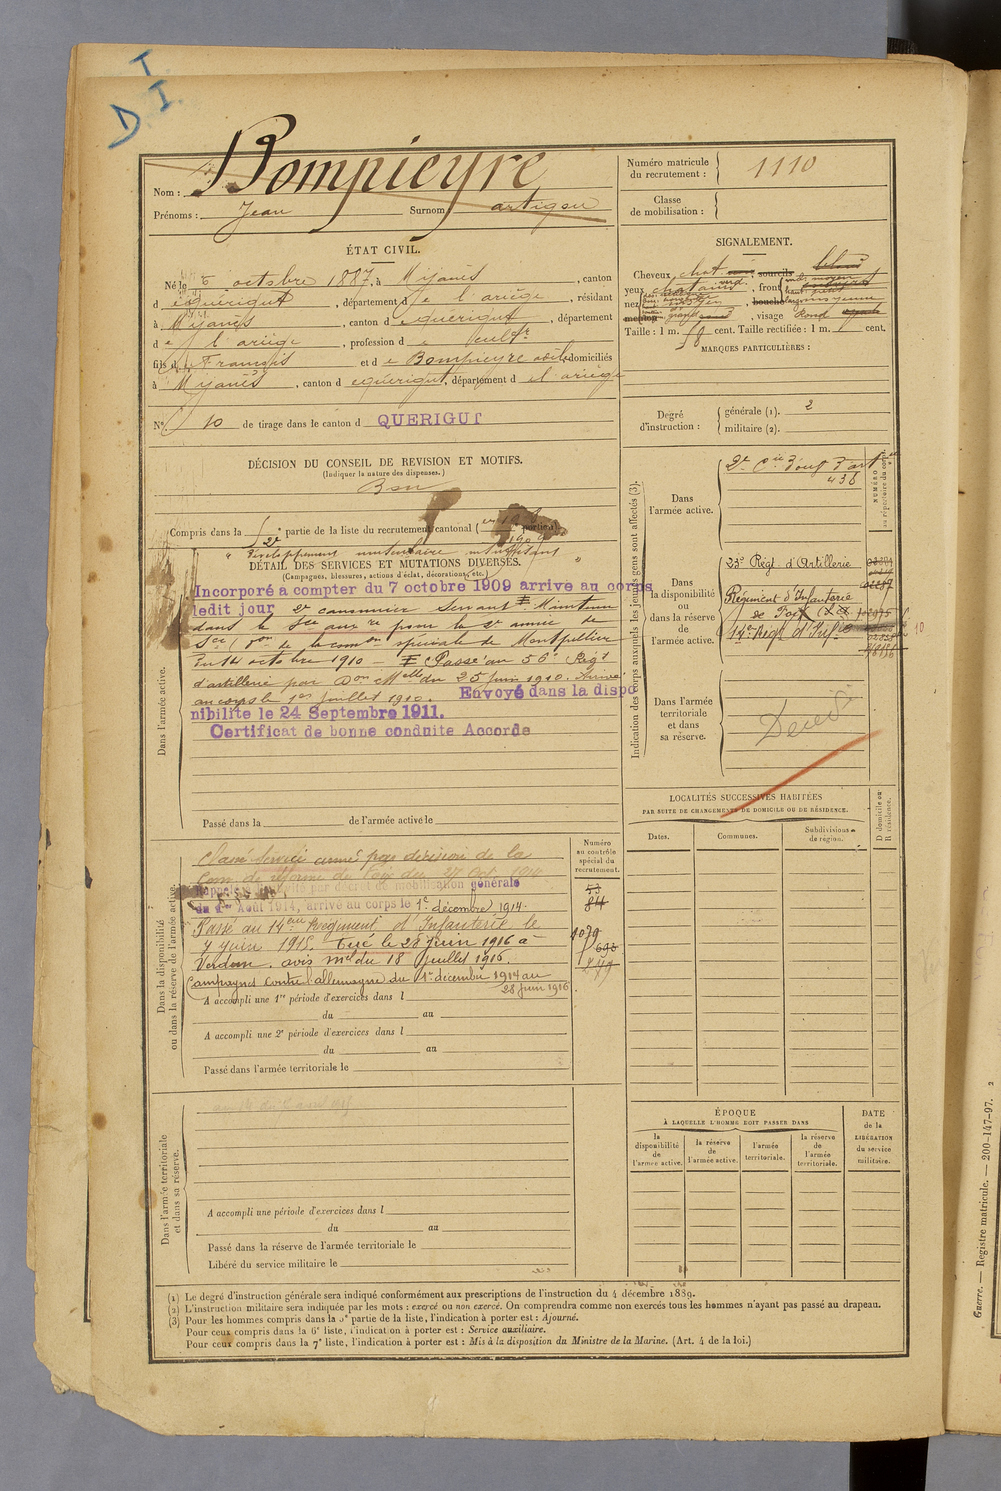 I
D I
Nom : Bompieyre
Prénoms : Jean Surnom artigou
Numéro matricule du recrutement : 1110
Classe de mobilisation :
ÉTAT CIVIL.
Né le 5 octobre 1887, à Mijanès, canton
d e querigut, département d e l'ariège, résidant
à Mijanès, canton d e querigut, département
d e l'ariège, profession d e cultr
fils d e François et d e Bompieyre domiciliés
à Mijanès, canton d e querigut, département d e l'ariège
N° 10 de tirage dans le canton d QUERIGUT
SIGNALEMENT.
Cheveux chat sourcils
yeux , front
nez , bouche
menton , visage Rond
Taille : 1 m. cent. Taille rectifiée : 1 m. cent.
MARQUES PARTICULIÈRES :
Degré d'instruction : générale (1). 2
militaire (2).
DÉCISION DU CONSEIL DE REVISION ET MOTIFS.
(Indiquer la nature des dispenses.)
Bon
Compris dans la 2e partie de la liste du recrutement cantonal ( portion).
Développement musculaire insuffisant
DÉTAIL DES SERVICES ET MUTATIONS DIVERSES.
(Campagnes, blessures, actions d'éclat, décorations, etc.)
Dans l'armée active.
Incorporé a compter du 7 octobre 1909 arrive au corps
ledit jour 2e canonnier Servant
dans le Sce auxre pour la 2e année de
Sce de la comon spéciale de Montpellier
du 14 octobre 1910 Passé au 56e Régt
d'artillerie par Don Melle du 25 juin 1910. Arrivé
au corps le 1er juillet 1910. Envoyé dans la dispo
nibilite le 24 Septembre 1911.
Certificat de bonne conduite Accorde
Passé dans la de l'armée active le
Indication des corps auxquels les jeunes gens sont affectés (3).
NUMÉRO au répertoire du corps.
Dans l'armée active.
436
Dans la disponibilité ou dans la réserve de l'armée active.
23e Régt d'Artillerie
Régiment d'Infanterie
de Foix
14e Régt d'Infie
10
Dans l'armée territoriale et dans sa réserve.
Décédé
LOCALITÉS SUCCESSIVES HABITÉES
PAR SUITE DE CHANGEMENTS DE DOMICILE OU DE RÉSIDENCE.
Dates. Communes. Subdivisions de région. D domicile ou R résidence.
Dans la disponibilité ou dans la réserve de l'armée active.
Numéro au contrôle spécial du recrutement.
Classé Service armé par décision de la
Com de réforme de Foix du 27 Octo 1914
Rappelé à l'activité par décret de mobilisation générale
du 1er Août 1914, arrivé au corps le 1e décembre 1914.
Passé au 14eme Régiment d'Infanterie le
7 juin 1915. Tué le 28 juin 1916 à
Verdun. avis Mel du 18 juillet 1916.
Campagnes contre l'allemagne du 1er décembre 1914 au
28 juin 1916
53
84
1079
693
A accompli une 1re période d'exercices dans l
du au
A accompli une 2e période d'exercices dans l
du au
Passé dans l'armée territoriale le
Dans l'armée territoriale et dans sa réserve.
A accompli une période d'exercices dans l
du au
Passé dans la réserve de l'armée territoriale le
Libéré du service militaire le
ÉPOQUE
À LAQUELLE L'HOMME DOIT PASSER DANS
la disponibilité de l'armée active.
la réserve de l'armée active.
l'armée territoriale.
la réserve de l'armée territoriale.
DATE de la LIBÉRATION du service militaire.
(1) Le degré d'instruction générale sera indiqué conformément aux prescriptions de l'instruction du 4 décembre 1889.
(2) L'instruction militaire sera indiquée par les mots : exercé ou non exercé. On comprendra comme non exercés tous les hommes n'ayant pas passé au drapeau.
(3) Pour les hommes compris dans la 5e partie de la liste, l'indication à porter est : Ajourné.
Pour ceux compris dans la 6e liste, l'indication à porter est : Service auxiliaire.
Pour ceux compris dans la 7e liste, l'indication à porter est : Mis à la disposition du Ministre de la Marine. (Art. 4 de la loi.)
Guerre. — Registre matricule. — 200-147-97. 2